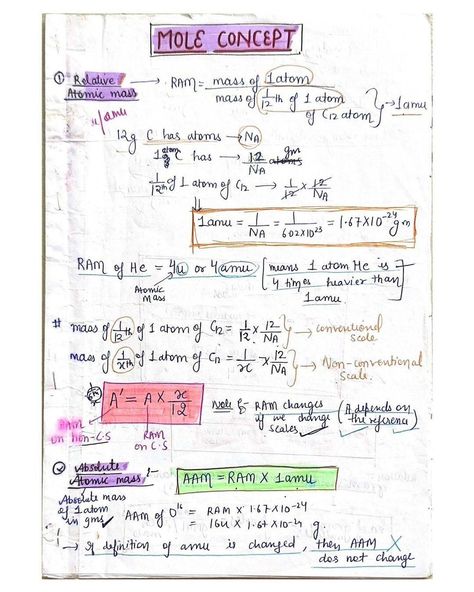 MOLE CONCEPT
① Relative Atomic mass → RAM = mass of 1 atom / mass of 1/12 th of 1 atom of C12 atom } → 1 amu
u/amu
12g C has atoms → NA
1 atom C has → 12/NA gm
1/12th of 1 atom of C12 → 1/12 × 12/NA
⇓
1amu = 1/NA = 1/6.02×10²³ = 1.67×10⁻²⁴ gm
RAM of He = 4u or 4amu [means 1 atom He is 4 times heavier than 1amu
Atomic Mass
# mass of 1/12 th of 1 atom of C12 = 1/12 × 12/NA } → conventional scale
mass of 1/x th of 1 atom of C12 = 1/x × 12/NA } → Non-conventional scale.
A' = A × x/12
Note :- RAM changes if we change scales (A depends on the reference)
RAM on non-C.S
RAM on C.S
② Absolute Atomic mass :- AAM = RAM × 1amu
Absolute mass of 1 atom in gms
AAM of O¹⁶ = RAM × 1.67×10⁻²⁴
= 16u × 1.67×10⁻²⁴ g.
→ If definition of amu is changed, then AAM does not change